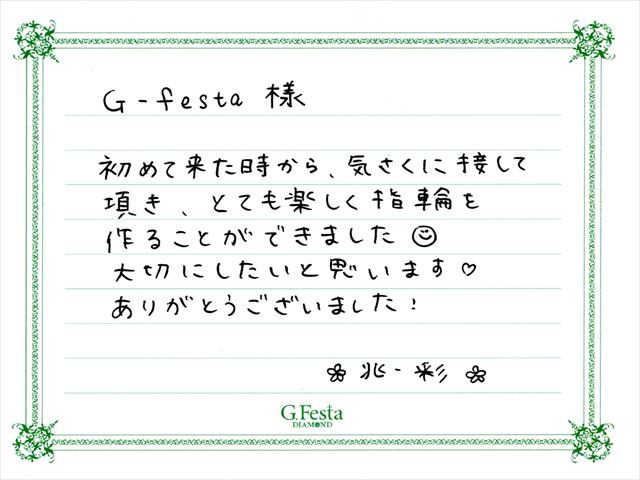 G-festa 様
初めて来た時から、気さくに接して
頂き、とても楽しく指輪を
作ることができました☺
大切にしたいと思います♡
ありがとうございました!
兆一 彩
G.Festa
DIAMOND